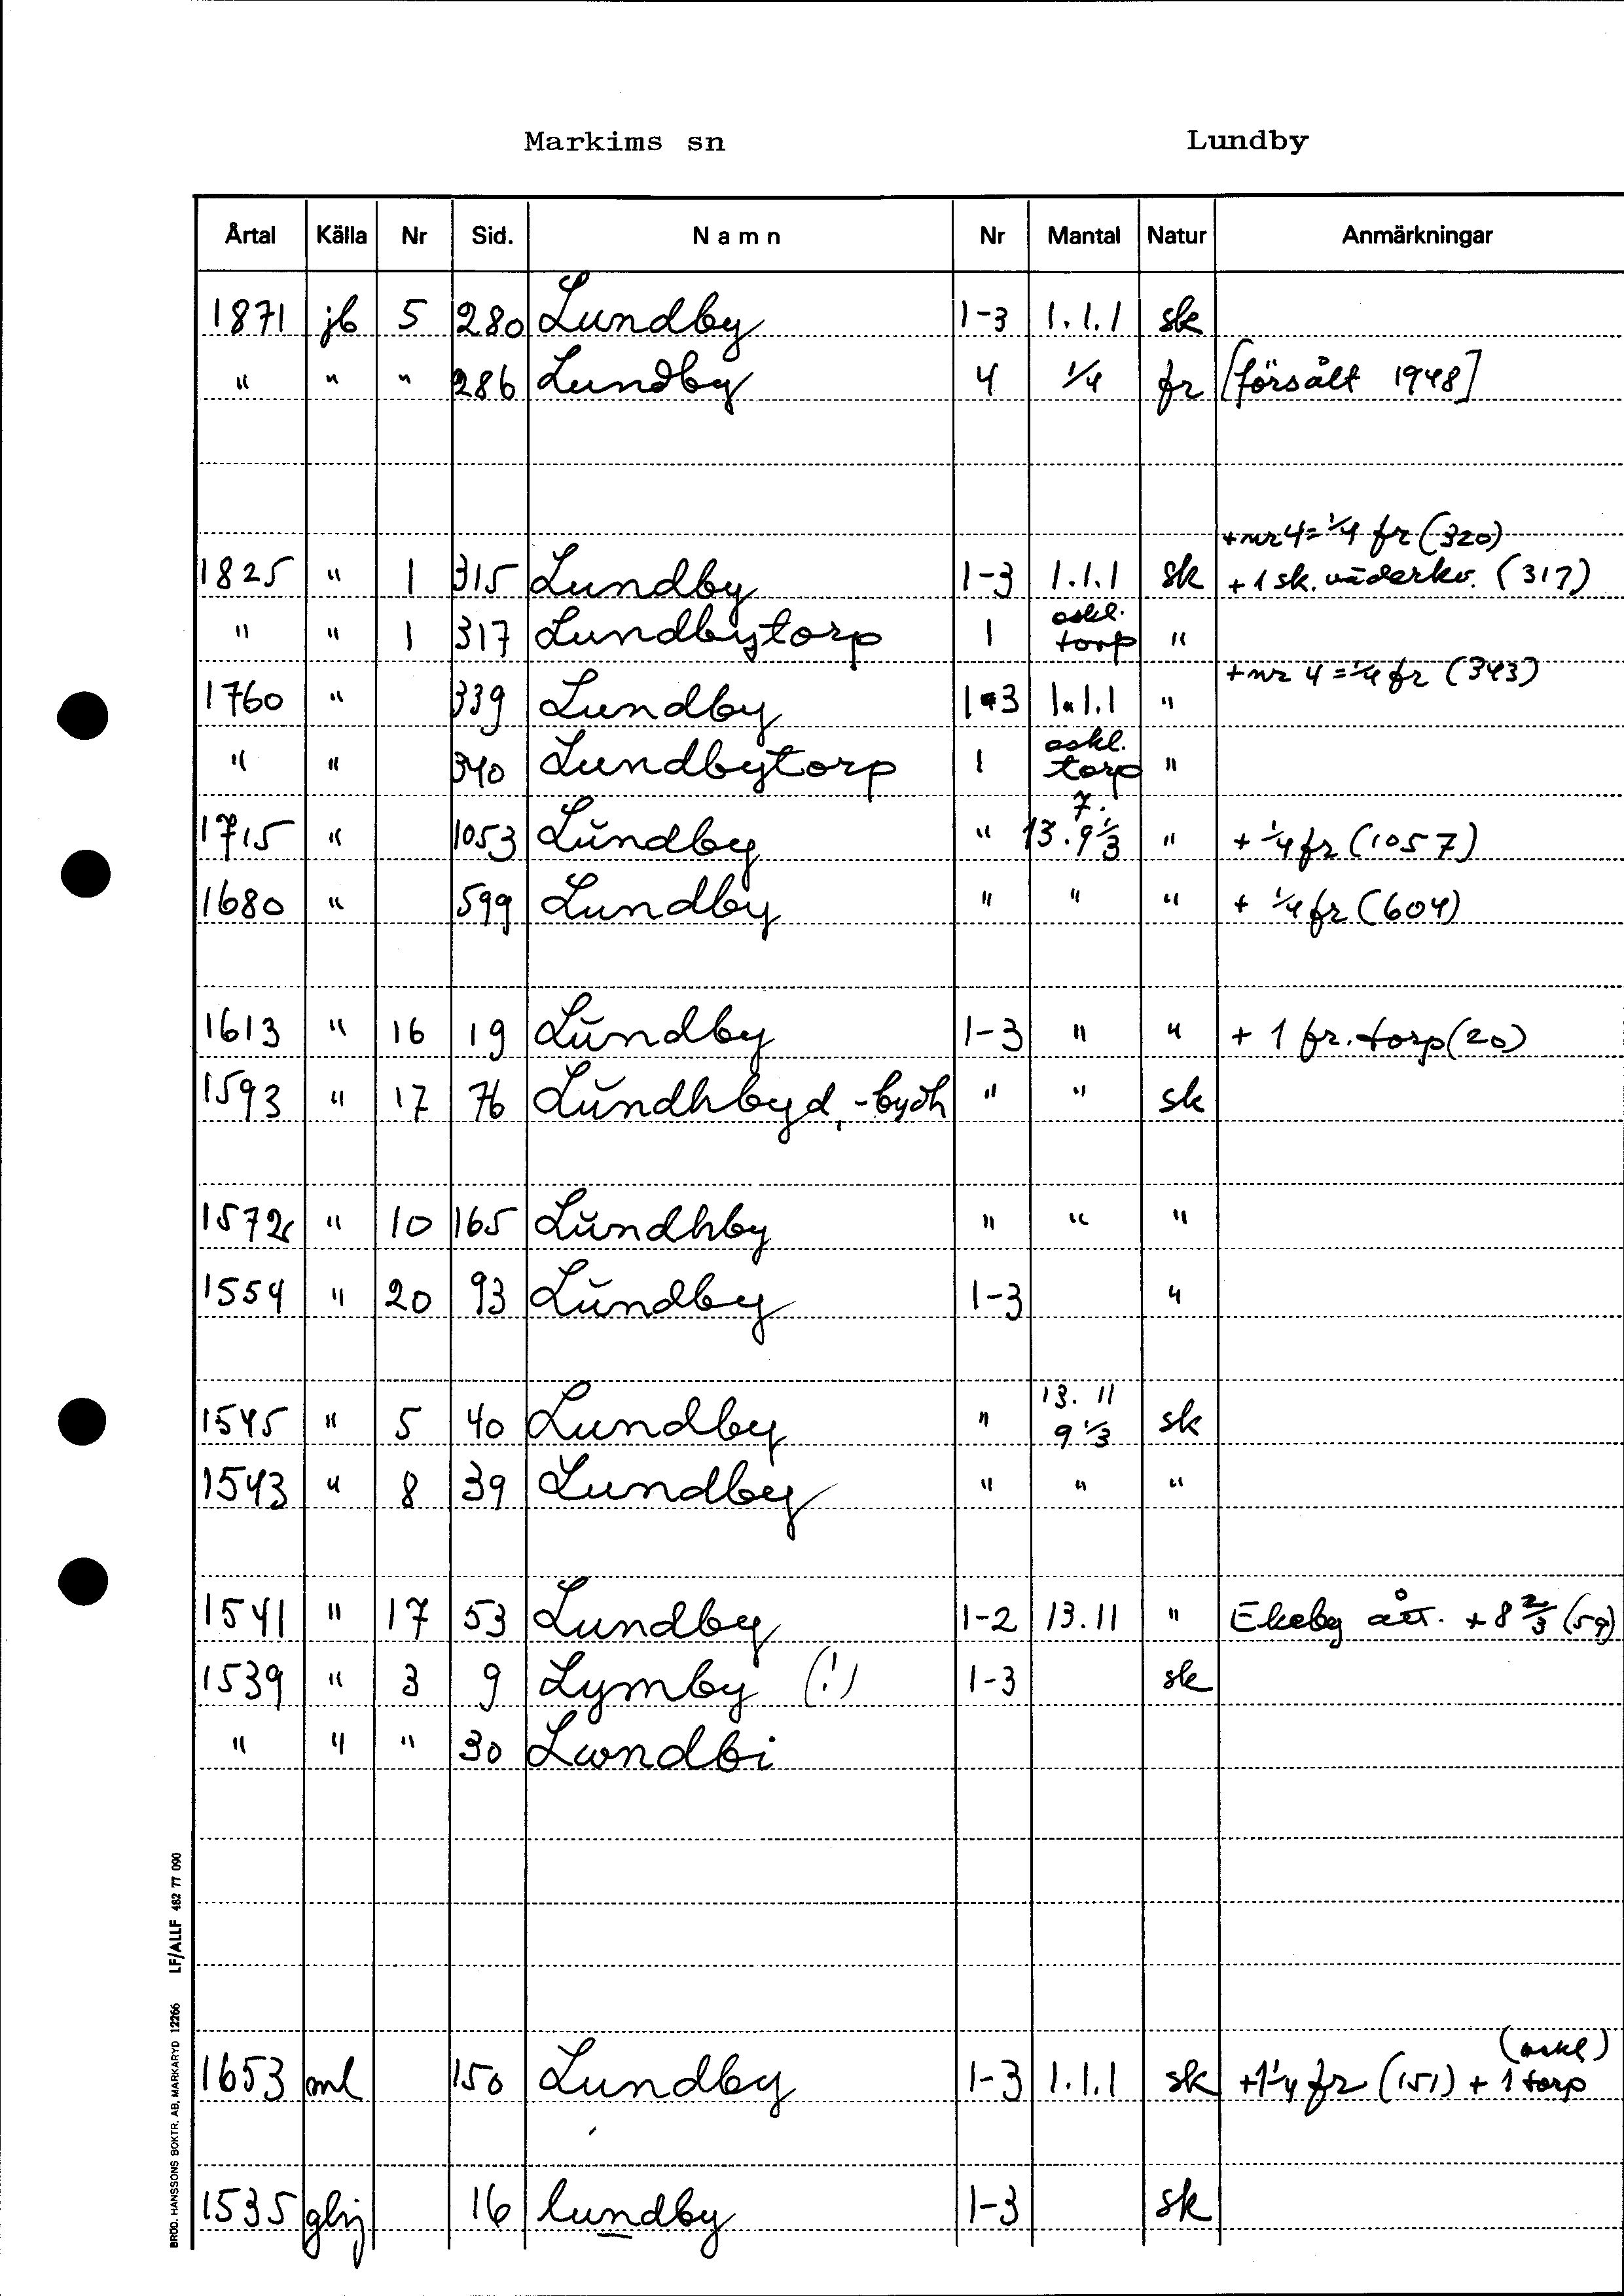 Markims sn Lundby
Årtal Källa Nr Sid. Namn Nr Mantal Natur Anmärkningar
1871 jb 5 280 Lundby 1-3 1.1.1 sk
" " " 286 Lundby 4 1/4 fr [försålt 1948]
+ nr 4 = 1/4 fr (320)
1825 " 1 315 Lundby 1-3 1.1.1 sk + 1 sk. väderkv. (317)
oskl.
" " 1 317 Lundbytorp 1 torp "
+ nr 4 = 1/4 fr (343)
1760 " 339 Lundby 1-3 1.1.1 "
oskl.
" " 340 Lundbytorp 1 torp "
7.
1715 " 1053 Lŭndby " 13.9 1/3 " + 1/4 fr (1057)
1680 " 599 Lundby " " " + 1/4 fr (604)
1613 " 16 19 Lŭndby 1-3 " " + 1 fr. torp (20)
1593 " 17 76 Lŭndhbyd, -bydh " " sk
1572 " 10 165 Lŭndhby " " "
1554 " 20 93 Lŭndby 1-3 "
13. 11
1545 " 5 40 Lundby " 9 1/3 sk
1543 " 8 39 Lundby " " "
1541 " 17 53 Lundby 1-2 13.11 " Ekeby ått. + 8 2/3 (59)
1539 " 3 9 Lymby (!) 1-3 sk
" " " 30 Lwndbi
(oskl)
1653 ml 150 Lundby 1-3 1.1.1 sk + 1 1/4 fr (151) + 1 torp
1535 ghj 16 lundby 1-3 sk
BRÖD. HANSSONS BOKTR. AB, MARKARYD 12266 LF/ALLF 482 77 090